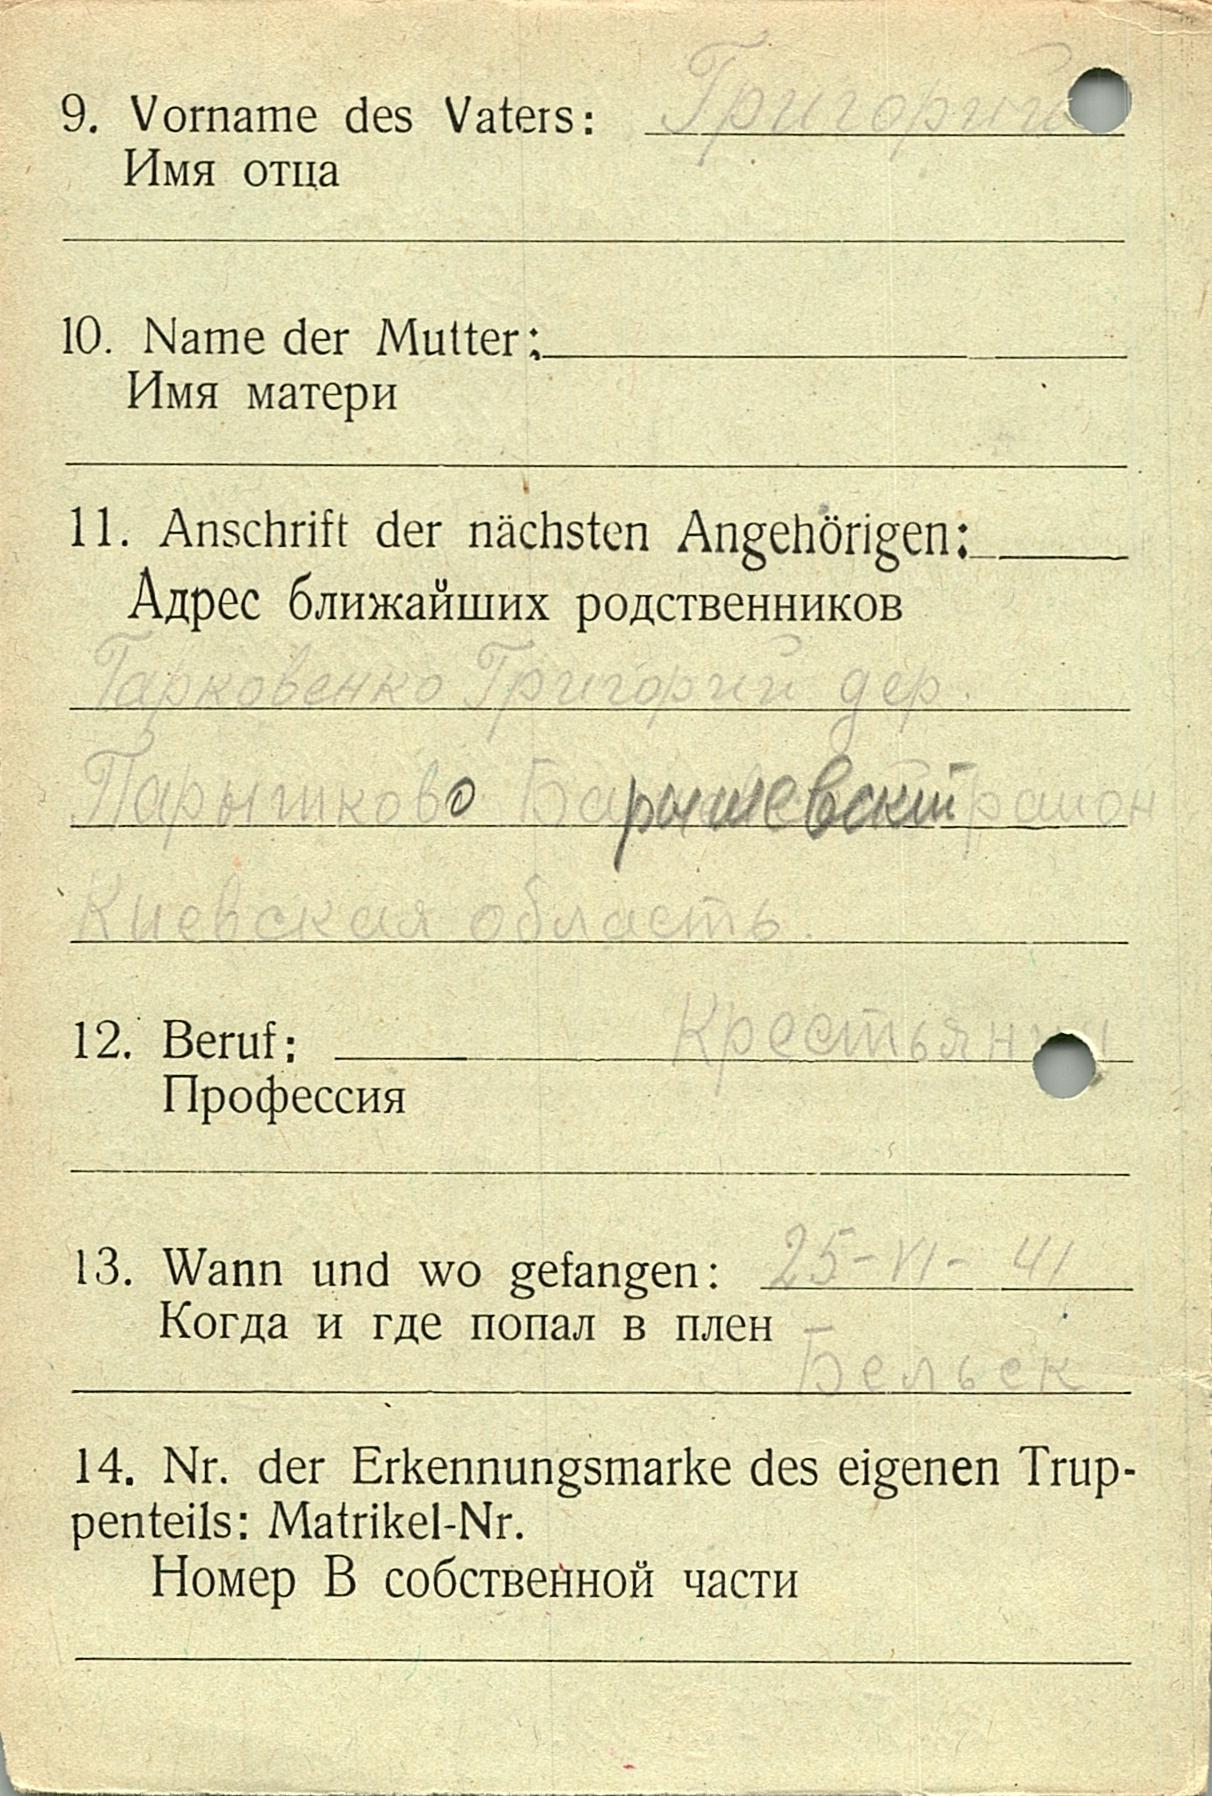 9. Vorname des Vaters: Григорий
Имя отца
10. Name der Mutter:
Имя матери
11. Anschrift der nächsten Angehörigen:
Адрес ближайших родственников
Тарковенко Григорий дер.
Парышково Барышевский район
Киевская область.
12. Beruf: Крестьянин
Профессия
13. Wann und wo gefangen: 25-VI-41
Когда и где попал в плен
Бельск
14. Nr. der Erkennungsmarke des eigenen Trup-
penteils: Matrikel-Nr.
Номер В собственной части